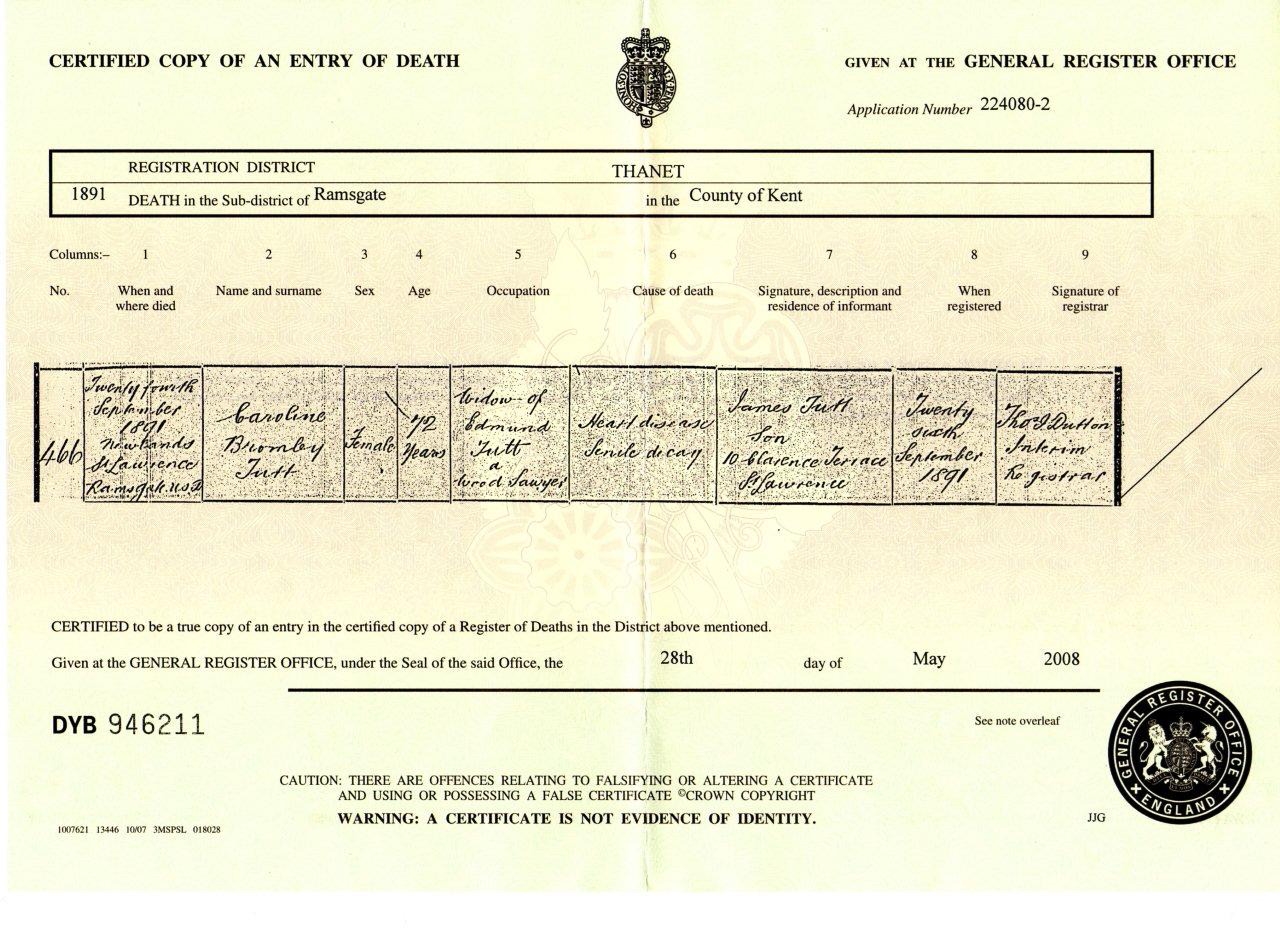 CERTIFIED COPY OF AN ENTRY OF DEATH
GIVEN AT THE GENERAL REGISTER OFFICE
Application Number 224080-2
REGISTRATION DISTRICT THANET
1891 DEATH in the Sub-district of Ramsgate in the County of Kent
Columns:– 1 2 3 4 5 6 7 8 9
No. When and where died Name and surname Sex Age Occupation Cause of death Signature, description and residence of informant When registered Signature of registrar
466
Twenty fourth
September
1891
Newlands
St Lawrence
Ramsgate U.S.D
Caroline
Bromley
Tutt
Female
72
Years
Widow of
Edmund
Tutt
a
Wood Sawyer
Heart disease
Senile decay
James Tutt
Son
10 Clarence Terrace
St Lawrence
Twenty
sixth
September
1891
Thos J Dutton
Interim
Registrar
CERTIFIED to be a true copy of an entry in the certified copy of a Register of Deaths in the District above mentioned.
Given at the GENERAL REGISTER OFFICE, under the Seal of the said Office, the 28th day of May 2008
DYB 946211
See note overleaf
CAUTION: THERE ARE OFFENCES RELATING TO FALSIFYING OR ALTERING A CERTIFICATE
AND USING OR POSSESSING A FALSE CERTIFICATE ©CROWN COPYRIGHT
WARNING: A CERTIFICATE IS NOT EVIDENCE OF IDENTITY.
1007621 13446 10/07 3MSPSL 018028
JJG
GENERAL REGISTER OFFICE
ENGLAND